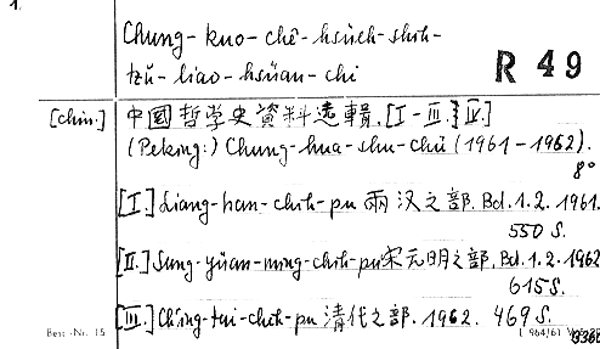 1.
Chung-kuo-chê-hsüeh-shih-
R 49
tzŭ-liao-hsüan-chi
[chin.] 中國哲学史資料选輯. [I-III.] [V.]
(Peking:) Chung-hua-shu-chü (1961-1962).
8°
[I.] Liang-han-chih-pu 兩汉之部. Bd. 1.2. 1961.
550 S.
[II.] Sung-yüan-ming-chih-pu 宋元明之部. Bd. 1.2. 1962
615 S.
[III.] Ch'ing-tai-chih-pu 清代之部. 1962. 469 S.
Best.-Nr. 15
L 964/61